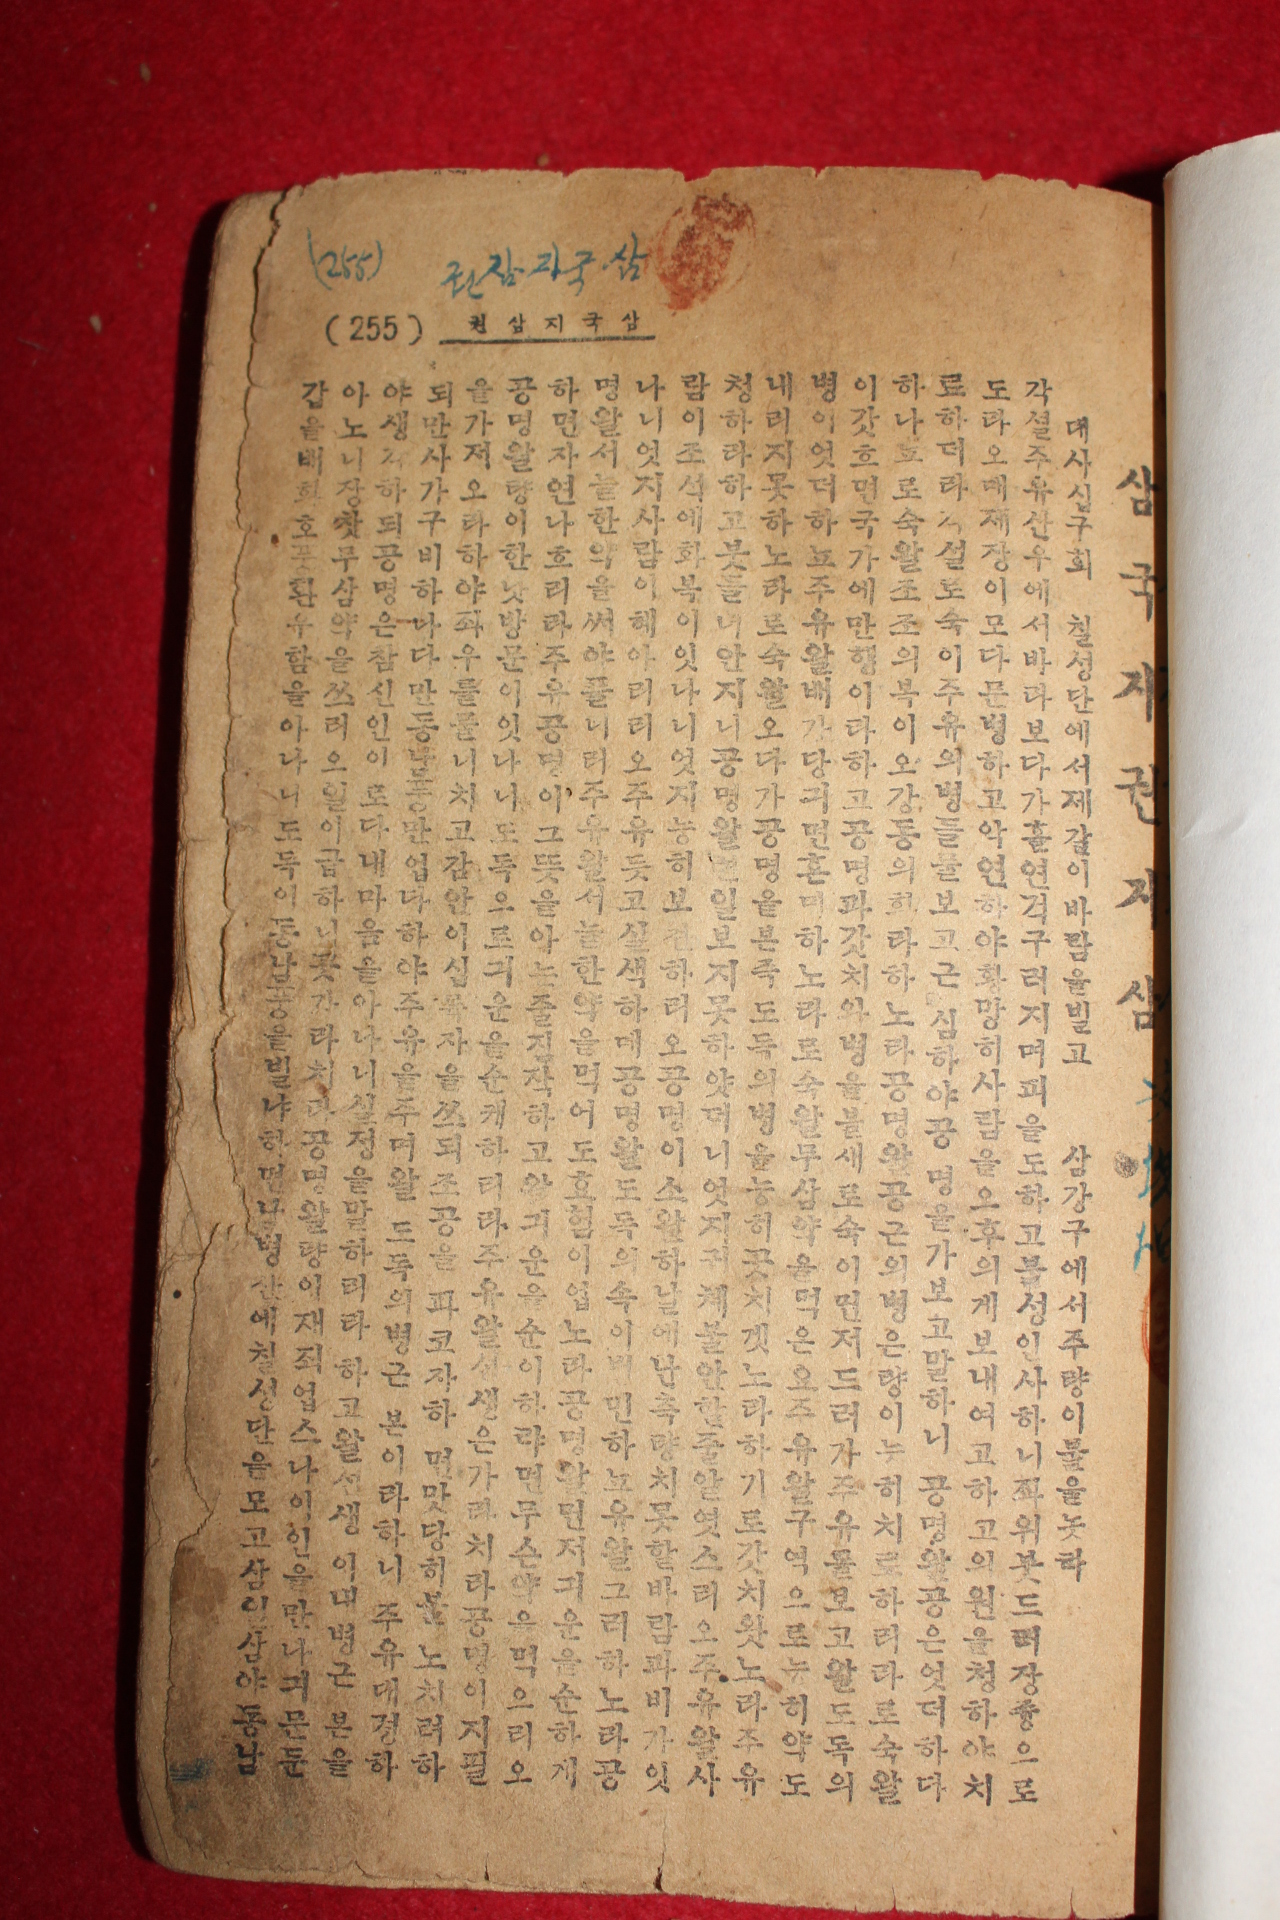 (255)
권삼·지국·삼
(255) 권삼지국삼
삼국지권지삼
대사십구회 칠성단에서제갈이바람을빌고 삼강구에서주량이불을놋타
각셜주유산우에서바라보다가홀연격구러지며피을도하고불성인사하니좌위붓드러장중으로
도라오매제장이모다문병하고악연하야황망히사람을오후의게보내여고하고의원을청하야치
료하더라각설로숙이주유의병들물보고근심하야공명을가보고말하니 공명왈공은엇더하다
하나뇨로숙왈조조의복이오강동의화라하노라공명왈공근의병은량이누히치료하리라로숙왈
이갓흐면국가에만행이라하고공명과갓치와병을볼새로숙이먼저드러가주유을보고왈도독의
병이엇더하뇨주유왈배가당긔면혼미하노라로숙왈무삼약을먹은요주유왈구역으로누히약도
내리지못하노라로숙왈오다가공명을본즉도독의병을능히곳치겟노라하기로갓치왓노라주유
청하라하고붓들녀안지니공명왈연일보지못하얏더니엇지귀체불안할줄알엿스리오주유왈사
람이조석에화복이잇나니엇지능히보전하리오공명이소왈하날에난측량치못할바람과비가잇
나니엇지사람이헤아리리오주유듯고실색하대공명왈도독의속이번민하뇨유왈그리하노라공
명왈서늘한약을써야풀니리주유왈서늘한약을먹어도효험이업노라공명왈먼저긔운을순하게
하면자연나흐리라주유공명이그뜻을아는줄짐작하고왈긔운을순이하랴면무슨약을먹으리오
공명왈량이한낫방문이잇나니도독으로긔운을순케하리라주유왈선생은가라치라공명이지필
을가저오라하야좌우를물니치고감안이십륙자을쓰되조공을 파코자하면맛당히불노치려하
되만사가구비하나다만동남풍만업다하야주유을주며왈 도독의병근 본이라하니 주유대경하
야생각하되공명은참신인이로다내마음을아나니실정을말하리라 하고왈선생 이대병근 본을
아노니장찻무삼약을쓰려오일이급하니곳가라치라공명왈량이재죄업스나이인을만나긔문둔
갑을배화호풍환우함을아나니도독이동남풍을빌냐하면남병산에칠성단을모고삼인삼야동남